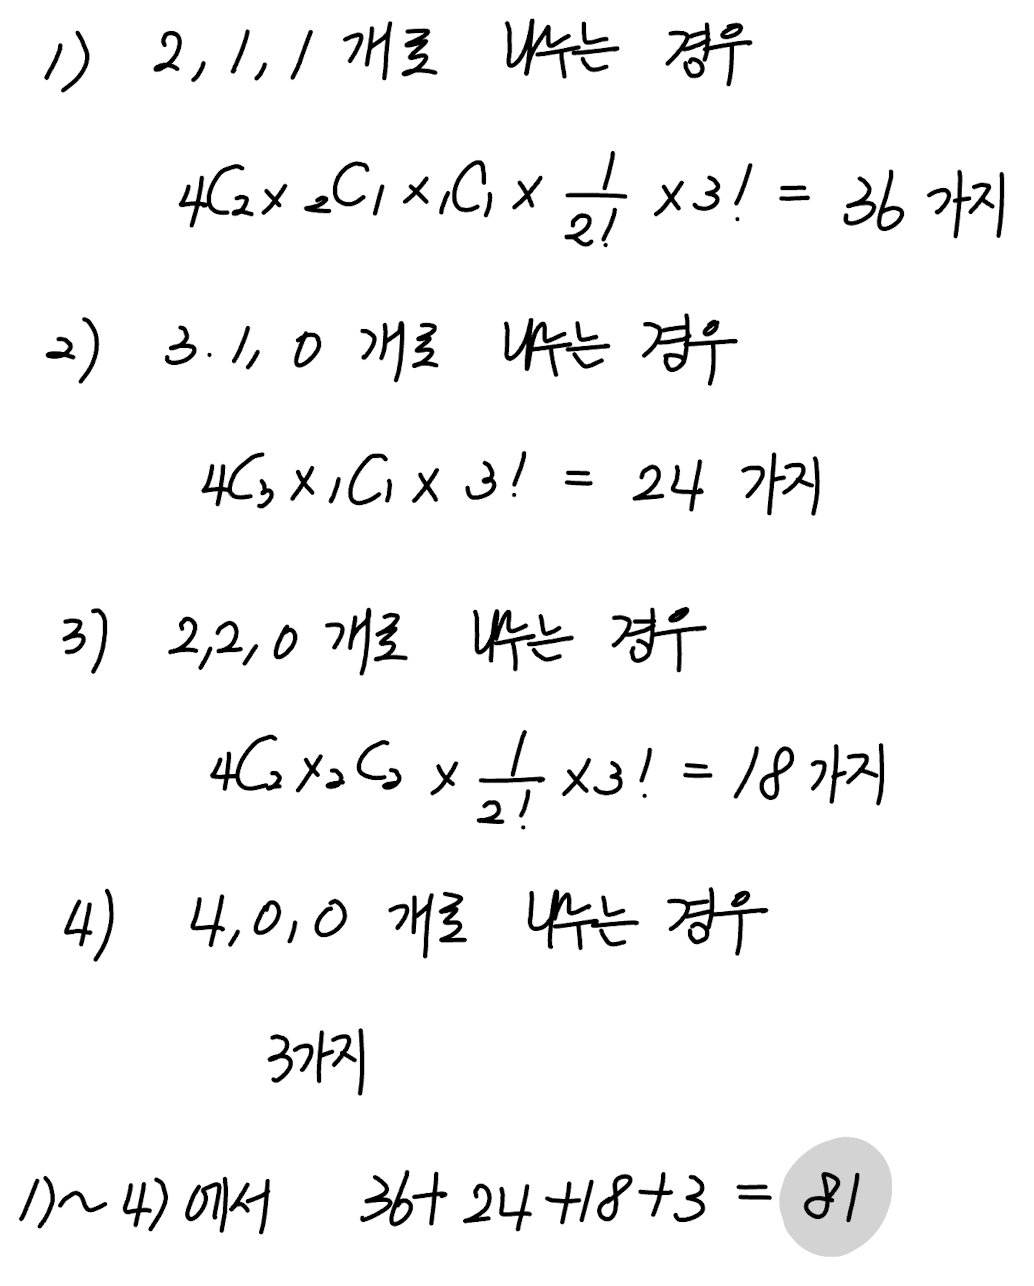 1) 2, 1, 1 개로 나누는 경우
4C2 × 2C1 × 1C1 × 1/2! × 3! = 36 가지
2) 3. 1, 0 개로 나누는 경우
4C3 × 1C1 × 3! = 24 가지
3) 2,2,0 개로 나누는 경우
4C2 × 2C2 × 1/2! × 3! = 18 가지
4) 4,0,0 개로 나누는 경우
3가지
1)~4)에서 36+24+18+3 = 81